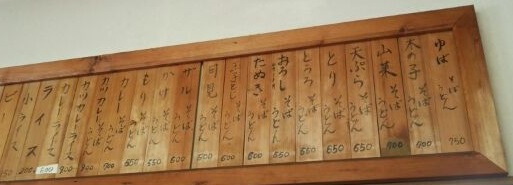 ゆば そば うどん 750
木の子 そば うどん 700
山菜 そば うどん 700
天ぷら そば うどん 650
とり そば うどん 650
とろろ そば うどん 650
おろし そば うどん 550
たぬき そば うどん 600
そば うどん 600
月見 そば うどん 600
ザル そば うどん 600
かけ そば うどん 550
もり そば うどん 550
カレー そば うどん 700
カツカレーライス 900
カレーライス 700
ライス
小ライス 200
ビー